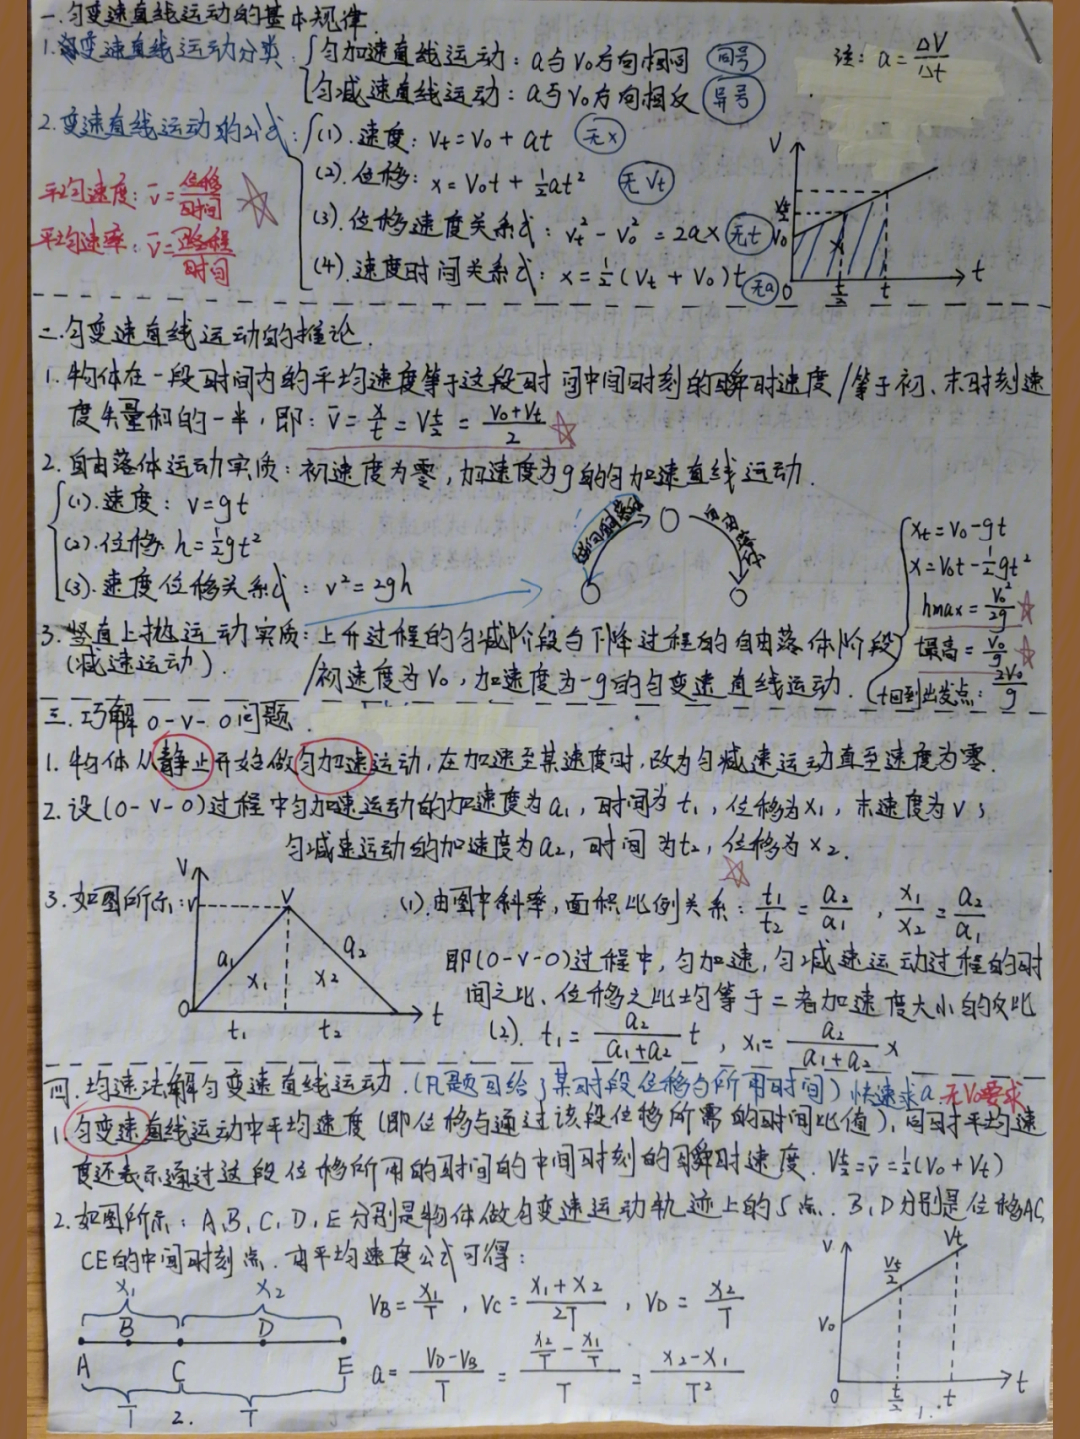 一.匀变速直线运动的基本规律.
1.变速直线运动分类:
匀加速直线运动:a与V₀方向相同 同号
注:a=ΔV/Δt
匀减速直线运动:a与V₀方向相反 异号
2.变速直线运动的公式:
(1).速度:Vt=V₀+at 无x
(2).位移:x=V₀t+½at² 无Vt
(3).位移速度关系式:Vt²-V₀²=2ax 无t
(4).速度时间关系式:x=½(Vt+V₀)t 无a
平均速度:v̄=位移/时间
平均速率:v̄=路程/时间
V
Vt/2
V₀
x
0 t/2 t t
二.匀变速直线运动的推论.
1.物体在一段时间内的平均速度等于这段时间中间时刻的瞬时速度/等于初、末时刻速
度矢量和的一半,即:v̄=x/t=Vt/2=(V₀+Vt)/2
2.自由落体运动实质:初速度为零,加速度为g的匀加速直线运动.
(1).速度:v=gt
(2).位移:h=½gt²
(3).速度位移关系式:v²=2gh
自由落体
3.竖直上抛运动实质:上升过程的匀减阶段与下降过程的自由落体阶段
(减速运动).
/初速度为V₀,加速度为-g的匀变速直线运动.
xt=V₀-gt
x=V₀t-½gt²
hmax=V₀²/2g
t最高=V₀/g
t回到出发点:2V₀/g
三.巧解0-V-0问题.
1.物体从静止开始做匀加速运动,在加速至某速度时,改为匀减速运动直至速度为零.
2.设(0-V-0)过程中匀加速运动的加速度为a₁,时间为t₁,位移为x₁,末速度为v;
匀减速运动的加速度为a₂,时间为t₂,位移为x₂.
3.如图所示:
V
v
V
a₁ a₂
x₁ x₂
0 t₁ t₂ t
(1).由图中斜率,面积比例关系:t₁/t₂=a₂/a₁,x₁/x₂=a₂/a₁
即(0-V-0)过程中,匀加速,匀减速运动过程的时
间之比、位移之比均等于二者加速度大小的反比
(2).t₁=a₂/(a₁+a₂) t,x₁=a₂/(a₁+a₂) x
四.均速法解匀变速直线运动.(凡题目给了某时段位移与所用时间)快速求a.无V₀要求
1.匀变速直线运动中平均速度(即位移与通过该段位移所需的时间比值),同时平均速
度还表示通过这段位移所用的时间的中间时刻的瞬时速度.Vt/2=v̄=½(V₀+Vt)
2.如图所示:A,B,C,D,E分别是物体做匀变速运动轨迹上的5点.B,D分别是位移AC,
CE的中间时刻点.由平均速度公式可得:
x₁ x₂
A B C D E
T T
2.
VB=x₁/T,VC=(x₁+x₂)/2T,VD=x₂/T
a=(VD-VB)/T=(x₂/T-x₁/T)/T=(x₂-x₁)/T²
V
Vt
Vt/2
V₀
0 t/2 t t
1.